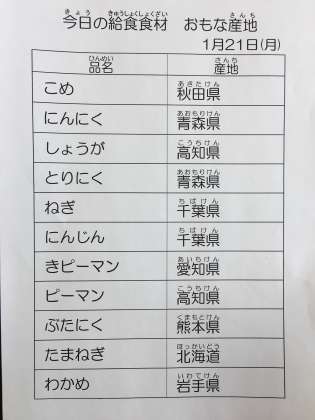 今日の給食食材　おもな産地
1月21日(月)
品名　産地
こめ　秋田県
にんにく　青森県
しょうが　高知県
とりにく　青森県
ねぎ　千葉県
にんじん　千葉県
きピーマン　愛知県
ピーマン　高知県
ぶたにく　熊本県
たまねぎ　北海道
わかめ　岩手県